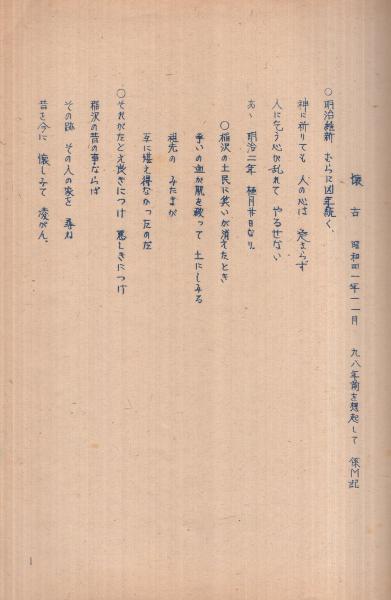 懐古 昭和四一年一一月 九八年前を想起して 保M記
○明治維新 むらに凶年続く、
神に祈りても 人の心は 定まらず
人に乞う心が乱れて やるせない
あゝ 明治二年 極月廿日なり、
○稲沢の土民に笑いが消えたとき
争いの血が肌を被って 土にしみる
祖先の みたまが
互に堪え得なかったのだ
○それがたとえ良きにつけ 悪しきにつけ
稲沢の昔の事ならば
その跡 その人の家を 尋ね
昔を今に 懐しみて 凌がん、
1